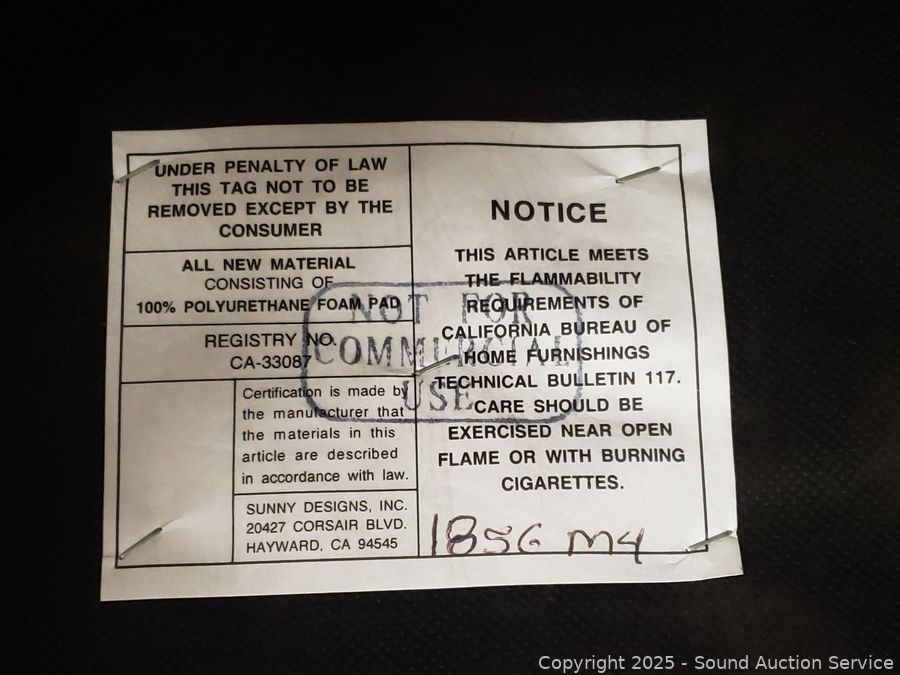 UNDER PENALTY OF LAW
THIS TAG NOT TO BE
REMOVED EXCEPT BY THE
CONSUMER
ALL NEW MATERIAL
CONSISTING OF
100% POLYURETHANE FOAM PAD
REGISTRY NO.
CA-33087
Certification is made by
the manufacturer that
the materials in this
article are described
in accordance with law.
SUNNY DESIGNS, INC.
20427 CORSAIR BLVD.
HAYWARD, CA 94545
NOTICE
THIS ARTICLE MEETS
THE FLAMMABILITY
REQUIREMENTS OF
CALIFORNIA BUREAU OF
HOME FURNISHINGS
TECHNICAL BULLETIN 117.
CARE SHOULD BE
EXERCISED NEAR OPEN
FLAME OR WITH BURNING
CIGARETTES.
NOT FOR
COMMERCIAL
USE
1856 M4
Copyright 2025 - Sound Auction Service